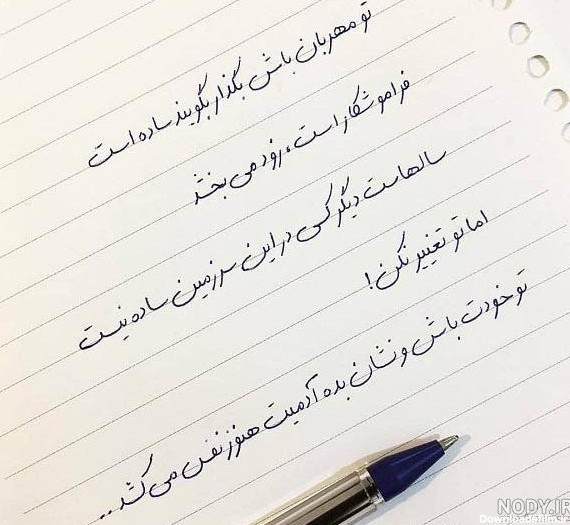 تو مهربان باش بگذار بگویند ساده است
فراموشکار است، زود می بخشد
سالهاست دیگر کسی در این سرزمین ساده نیست
اما تو تغییر نکن!
تو خودت باش و نشان بده آدمیت هنوز نفس می کشد...
NODY.IR